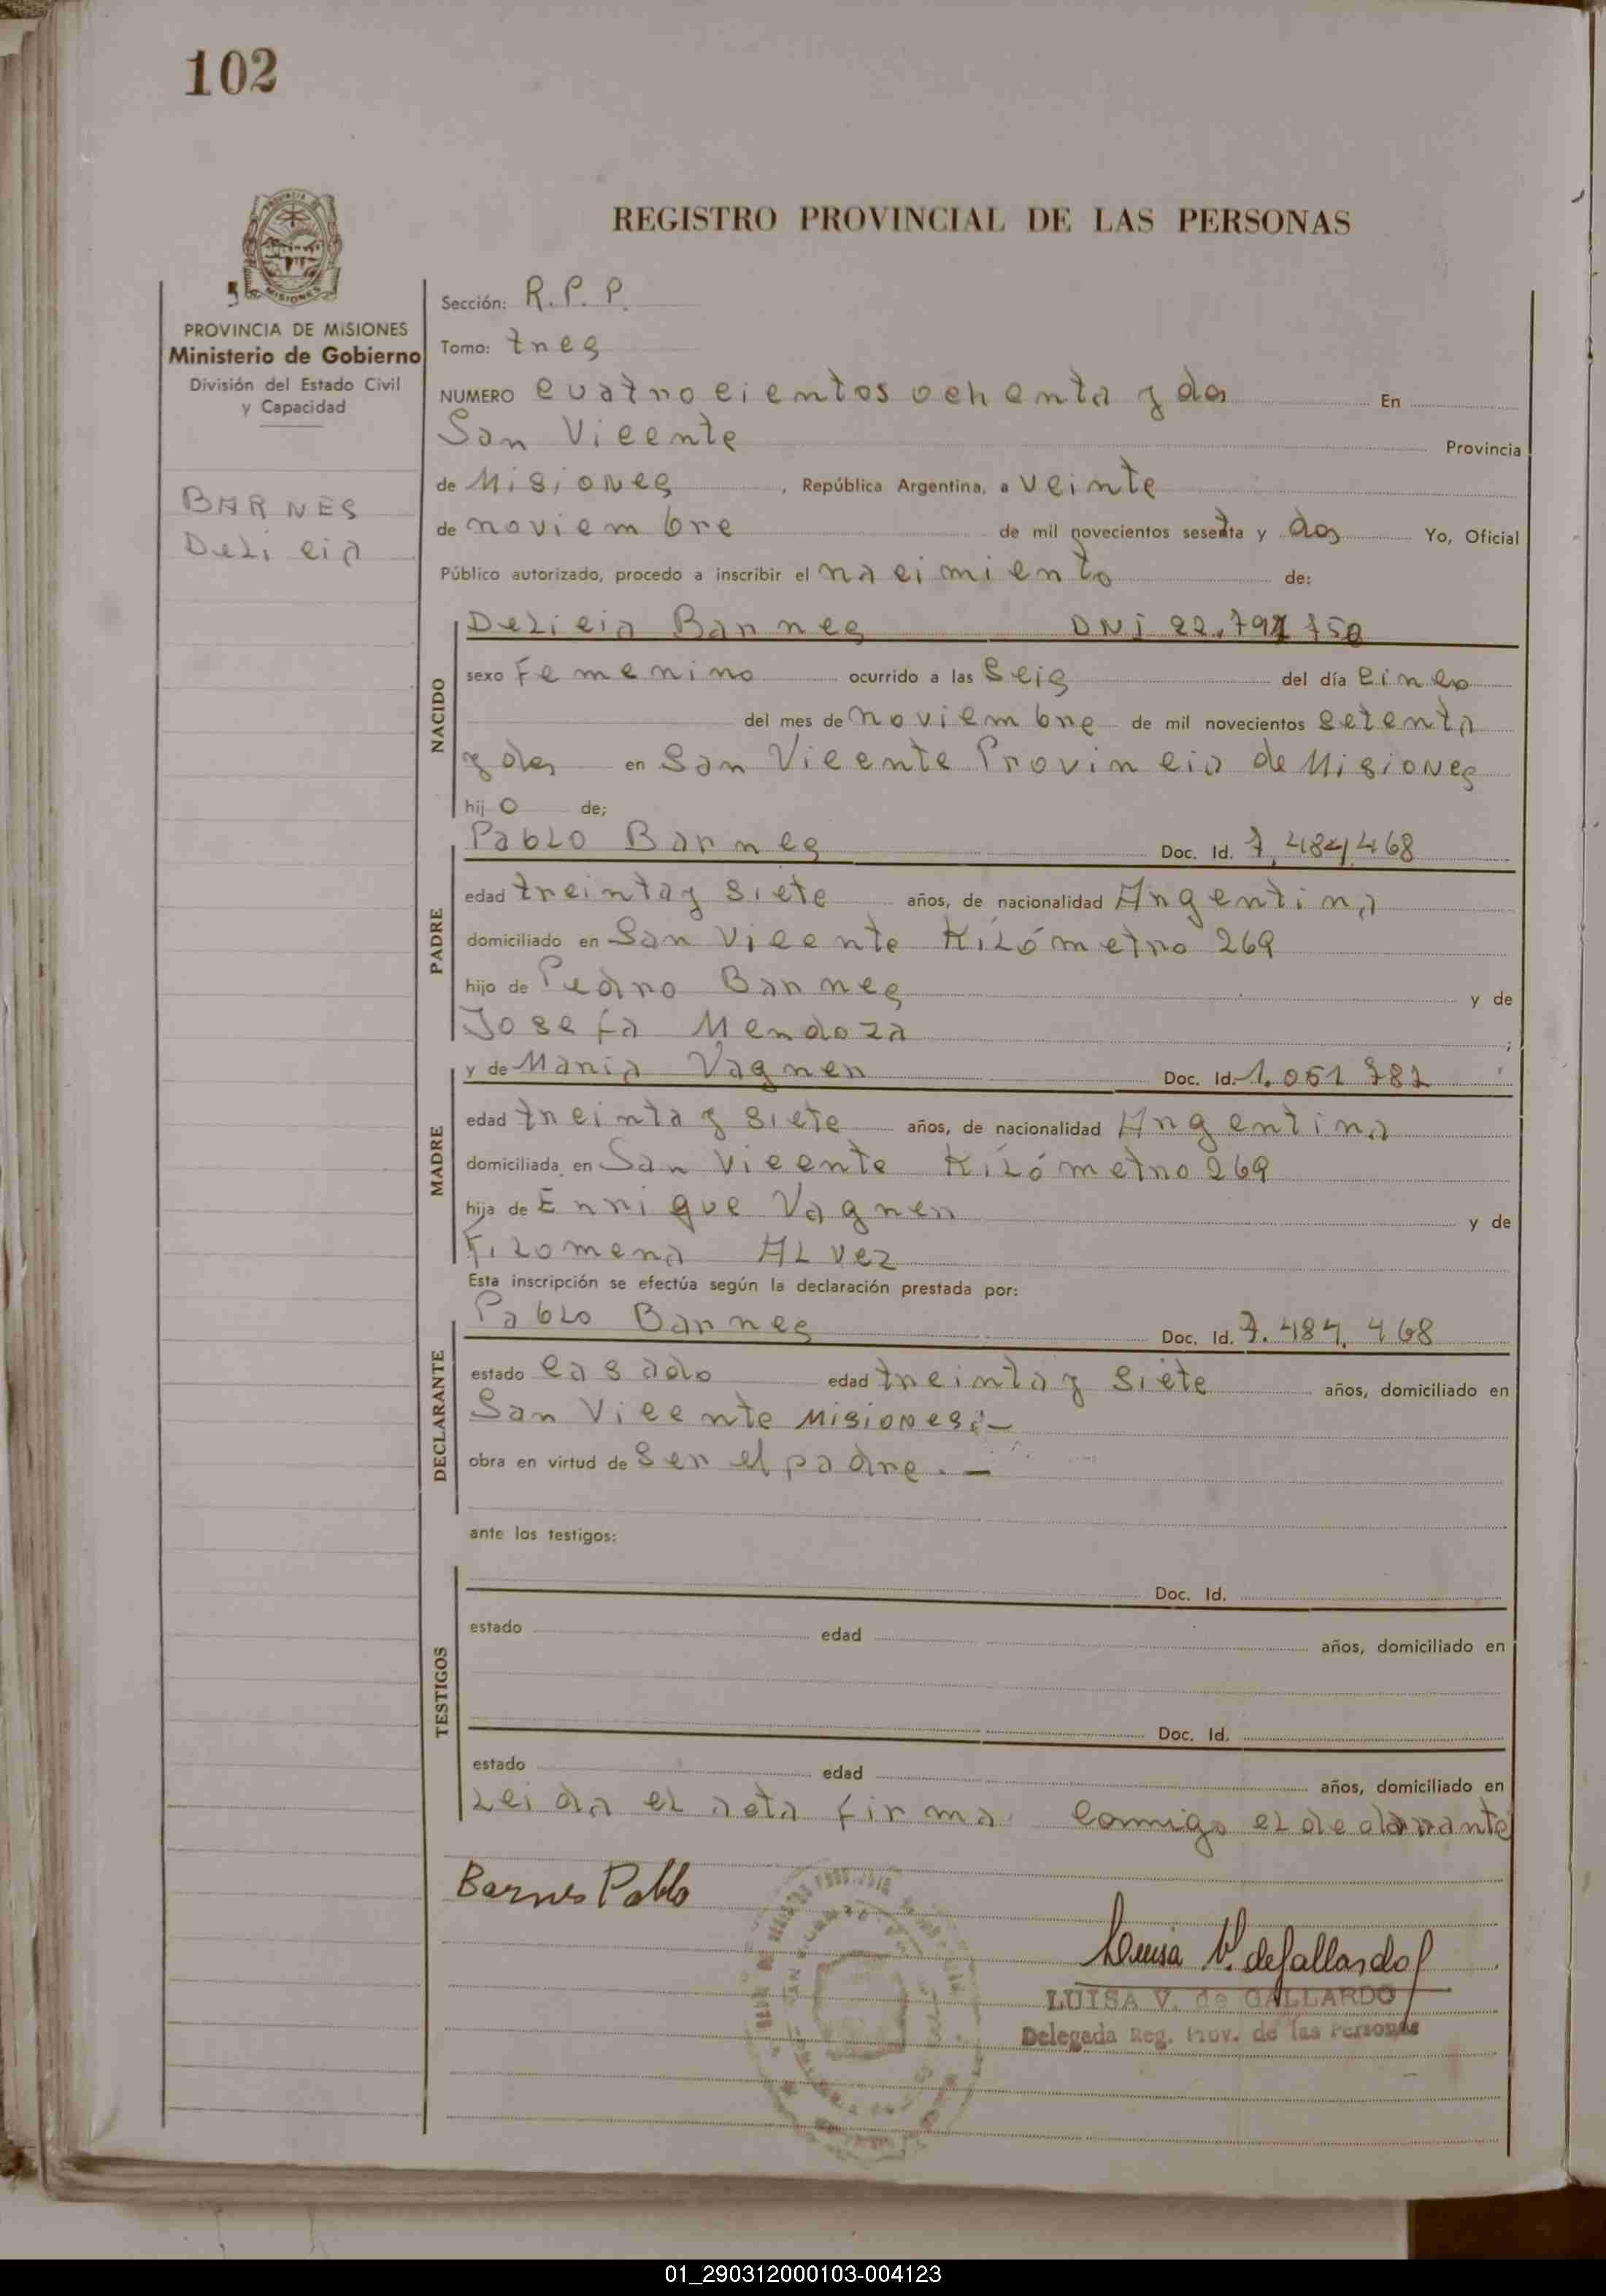 102
REGISTRO PROVINCIAL DE LAS PERSONAS
MISIONES
PROVINCIA DE MISIONES
Ministerio de Gobierno
División del Estado Civil
y Capacidad
BARNES
Delicia
Sección: R.P.P.
Tomo: tres
NUMERO cuatrocientos ochenta y dos En
San Vicente Provincia
de Misiones, República Argentina, a veinte
de noviembre de mil novecientos sesetta y dos Yo, Oficial
Público autorizado, procedo a inscribir el nacimiento de:
NACIDO
Delicia Barnes DNI
sexo Femenino ocurrido a las Seis del día cinco
del mes de noviembre de mil novecientos setenta
y dos en San Vicente Provincia de Misiones
hijo de;
PADRE
Pablo Barnes Doc. Id. 7.484.468
edad treinta y siete años, de nacionalidad Argentina
domiciliado en San Vicente Kilómetro 269
hijo de Pedro Barnes y de
Josefa Mendoza ;
MADRE
y de Maria Vagner Doc. Id. 1.051 782
edad treinta y siete años, de nacionalidad Argentina
domiciliada en San Vicente Kilómetro 269
hija de Enrique Vagner y de
Filomena Alvez
Esta inscripción se efectúa según la declaración prestada por:
DECLARANTE
Pablo Barnes Doc. Id. 7.484.468
estado casado edad treinta y siete años, domiciliado en
San Vicente Misiones:-
obra en virtud de ser el padre.-
ante los testigos:
TESTIGOS
Doc. Id.
estado edad años, domiciliado en
Doc. Id.
estado edad años, domiciliado en
Leida el acta firma conmigo el declarante
Barnes Pablo
Luisa V. de Gallardo
LUISA V. de GALLARDO
Delegada Reg. Prov. de las Personas
01_290312000103-004123